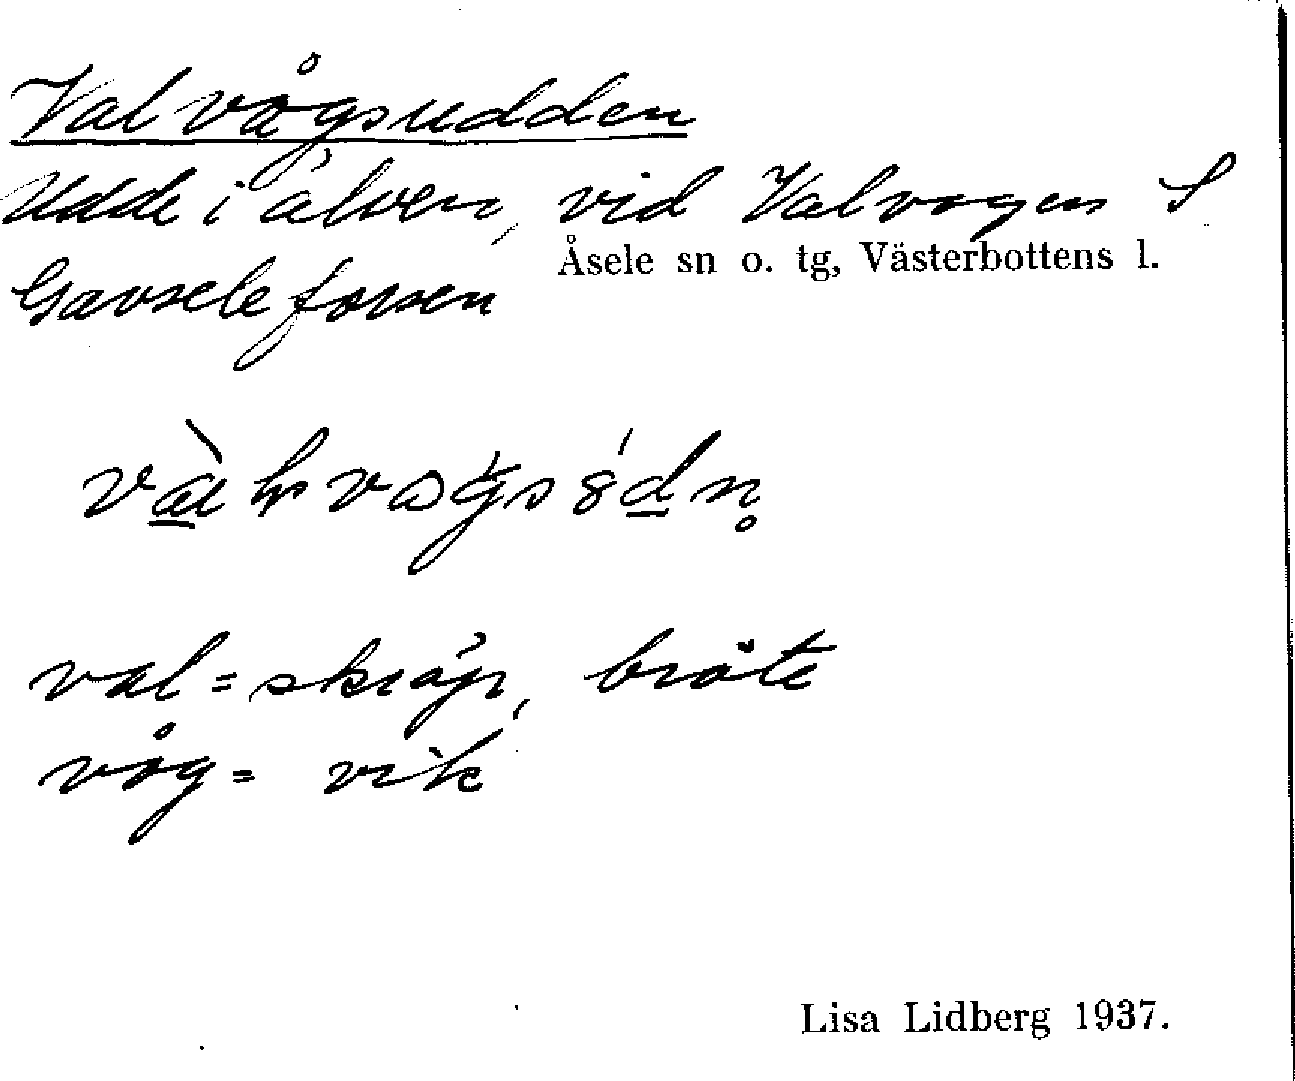 Valvågsudden
Udde i älven, vid Valvogen S
Åsele sn o. tg, Västerbottens l.
Gavseleforsen
val = skräp, bröte
våg = vik
Lisa Lidberg 1937.